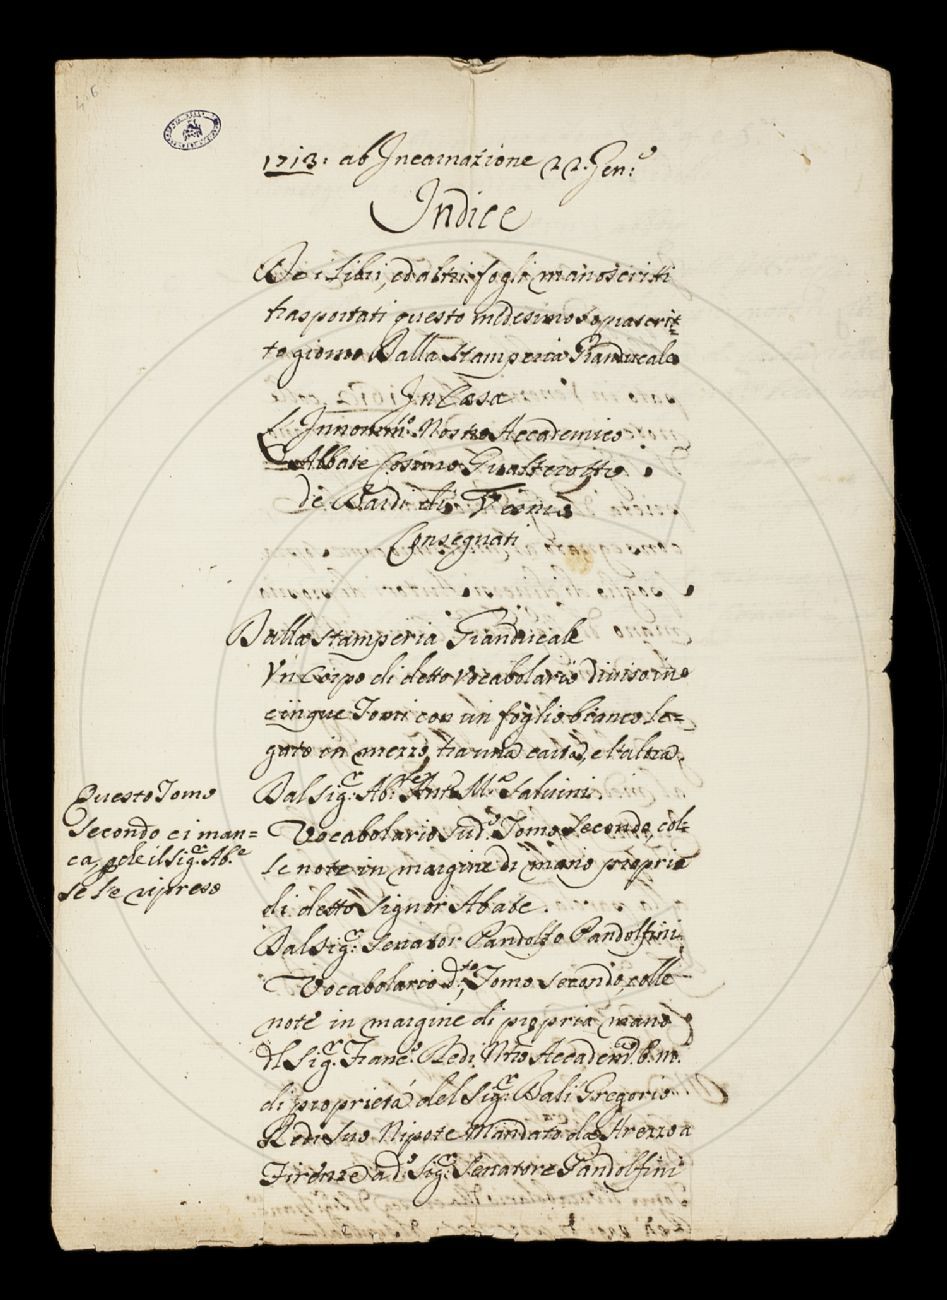 1713: ab Incarnazione 22. Gen:o
Indice
De i Libri, ed altri fogli manoscritti
trasportati questo medesimo soprascrit=
to giorno Dalla Stamperia Granducale
In Casa
L'Innom:to Nostro Accademico
Abbate Cosimo Gualterotto
de Bardi di Vernio
Consegnati
Dalla Stamperia Granducale
Un Corpo di detto Vocabolario diviso in
cinque Tomi con un foglio bianco le=
gato in mezzo, tra una carta, e l'altra.
Dal Sig:r Ab:te Ant: M:a Salvini.
Vocabolario sud:o Tomo secondo, col=
le note in margine di mano propria
di detto Signor Abate.
Questo Tomo
secondo ci man=
ca, che il Sig:r Ab:e
se l'è ripreso
Dal Sig:r Senator Pandolfo Pandolfini.
Vocabolario d:to, Tomo secondo, colle
note in margine di propria mano
del Sig:r Franc:o Redi Nro Accadem:o b. m.
di proprietà del Sig:r Balì Gregorio
Redi suo Nipote mandato da Arezzo a
Firenze a d:o Sig:r Senatore Pandolfini